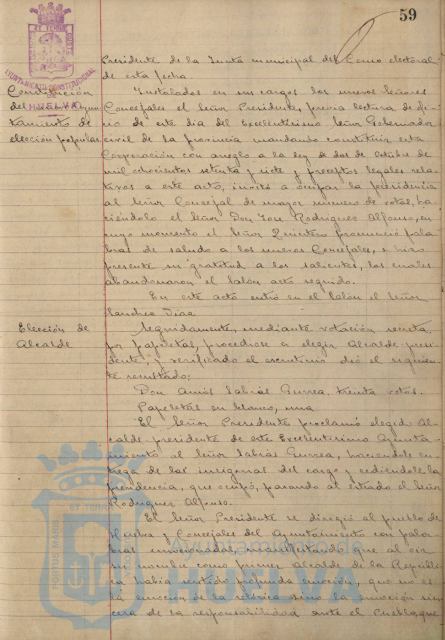 59
AYUNTAMIENTO CONSTITUCIONAL
HUELVA
Presidente de la Junta municipal del Censo electoral
de esta fecha
Constitución
del Ayun
tamiento de
elección popular
Instalados en sus cargos los nuevos Señores
Concejales el Señor Presidente, previa lectura de ofi-
cio de este dia del Excelentisimo Señor Gobernador
civil de la provincia mandando constituir esta
Corporación con arreglo a la ley de dos de Octubre de
mil ochocientos setenta y siete y preceptos legales rela-
tivos a este acto, invitó a ocupar la presidencia
al Señor Concejal de mayor número de votos, ha-
ciéndolo el Señor Don Jose Rodriguez Alfonso, en
cuyo momento el Señor Quintero pronunció pala-
bras de saludo a los nuevos Concejales, e hizo
presente su gratitud a los salientes, los cuales
abandonaron el Salón acto seguido.
En este acto entró en el Salón el Señor
Sanchez Diaz
Elección de
Alcalde
Seguidamente, mediante votación secreta,
por papeletas, procedióse a elegir Alcalde-presi-
dente, y verificado el escrutinio dió el siguien-
te resultado:
Don Amós Sabrás Gurrea, treinta votos.
Papeletas en blanco, una
El Señor Presidente proclamó elegido Al-
calde presidente de este Excelentisimo Ayunta-
miento al Señor Sabrás Gurrea, haciéndole en-
trega de las insignias del cargo y cediéndole la
presidencia, que ocupó, pasando al estrado el Señor
Rodriguez Alfonso.
El Señor Presidente se dirigió al pueblo de
Huelva y Concejales del Ayuntamiento con pala-
bras emocionadas, manifestando que al oir
su nombre como primer Alcalde de la República
habia sentido profunda emoción, que no es
la emoción de la retórica sino la emoción sin-
cera de la responsabilidad ante el Pueblo, que
PORTUS MARIS
ET TERRAE
Ayuntamiento de
HUELVA